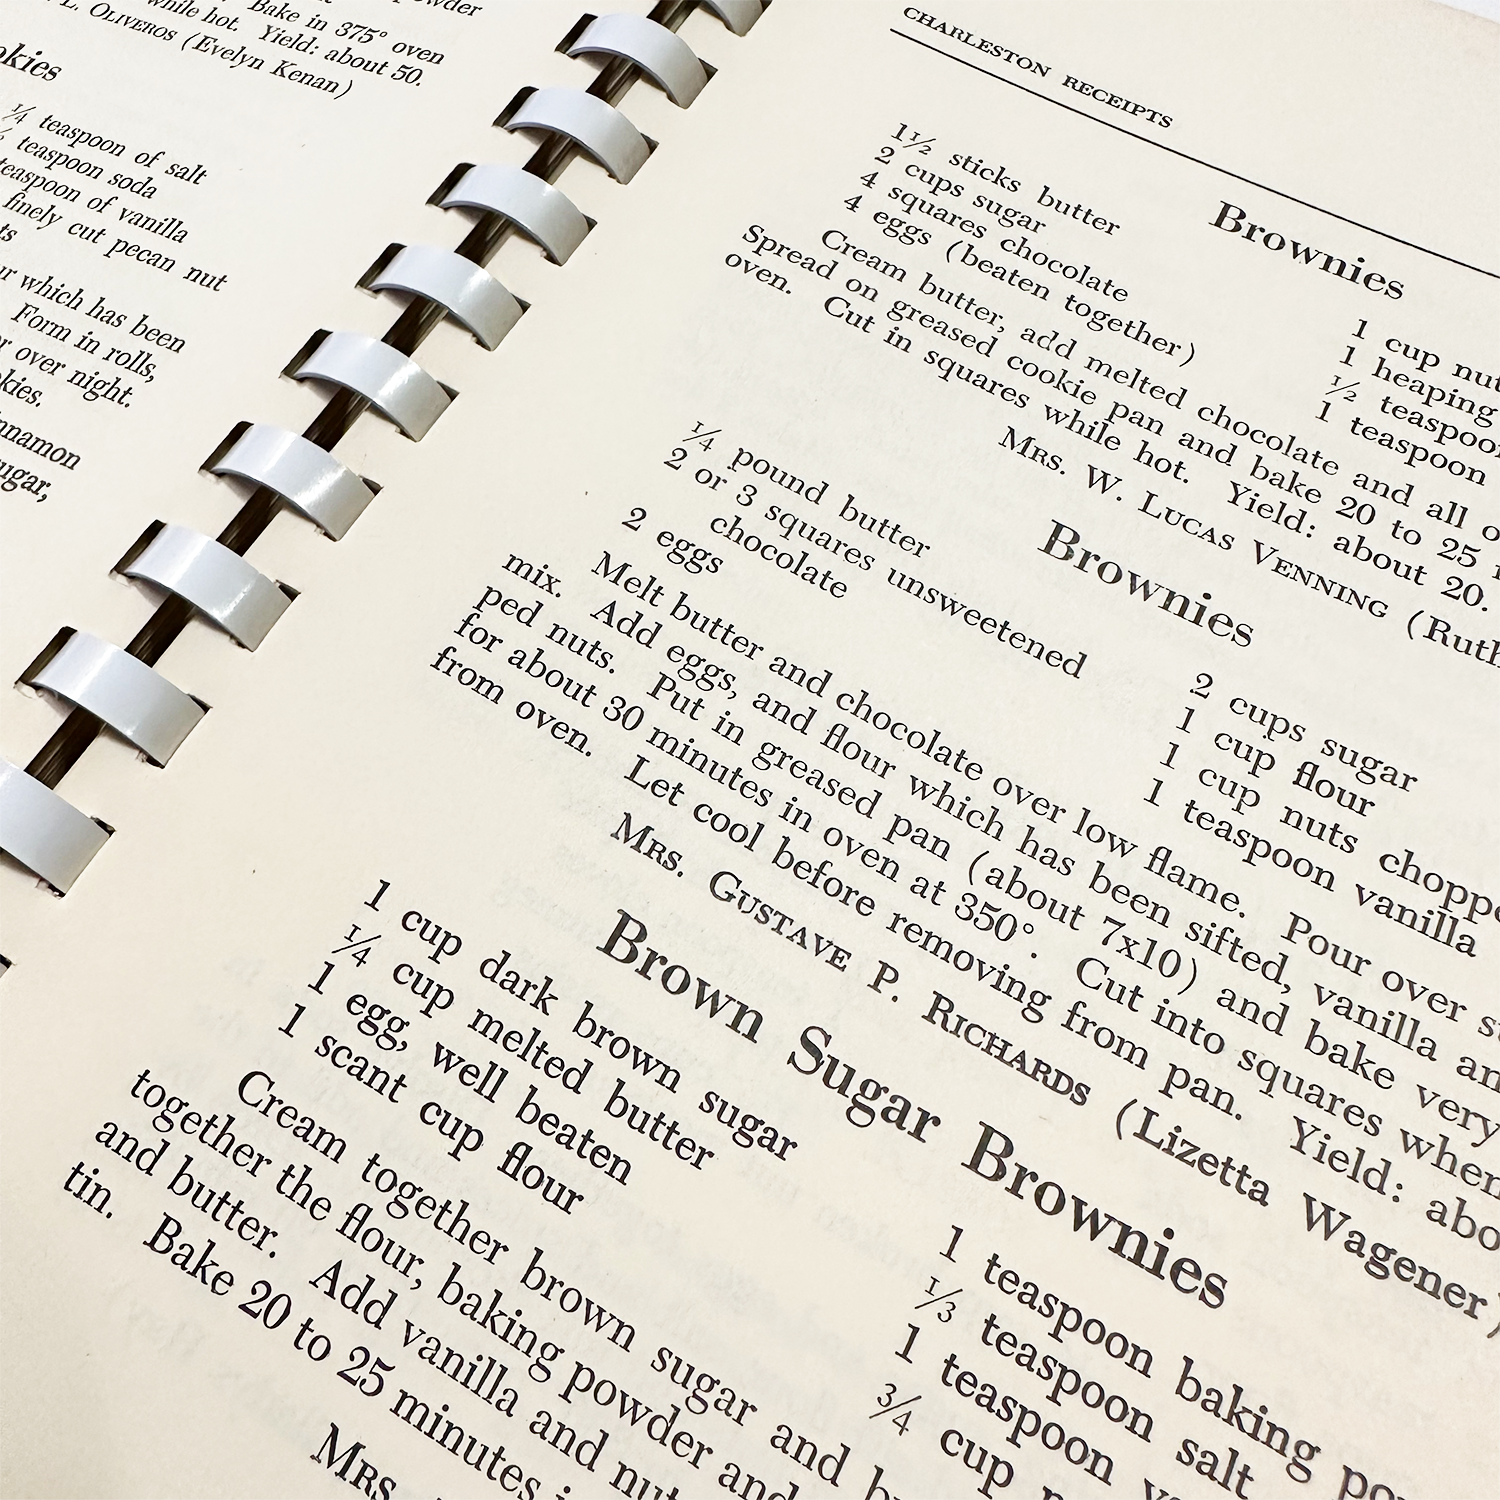 powder
while hot. Bake in 375° oven
Yield: about 50.
L. OLIVEROS (Evelyn Kenan)
1/4 teaspoon of salt
teaspoon soda
teaspoon of vanilla
finely cut pecan nut
which has been
Form in rolls,
over night.
CHARLESTON RECEIPTS
Brownies
1 1/2 sticks butter
2 cups sugar
4 squares chocolate
4 eggs (beaten together)
1 cup
1 heaping
1/2
1 teaspoon
Cream butter, add melted chocolate and all
Spread on greased cookie pan and bake 20 to 25
oven. Cut in squares while hot. Yield: about 20.
MRS. W. LUCAS VENNING (Ruth
Brownies
1/4 pound butter
2 or 3 squares unsweetened
chocolate
2 eggs
2 cups sugar
1 cup flour
1 cup nuts
1 teaspoon vanilla
Melt butter and chocolate over low flame. Pour over
mix. Add eggs, and flour which has been sifted, vanilla
ped nuts. Put in greased pan (about 7x10) and bake very
for about 30 minutes in oven at 350°. Cut into squares when
from oven. Let cool before removing from pan. Yield:
MRS. GUSTAVE P. RICHARDS (Lizetta Wagener)
Brown Sugar Brownies
1 cup dark brown sugar
1/4 cup melted butter
1 egg, well beaten
1 scant cup flour
1 teaspoon baking
1/3 teaspoon salt
1 teaspoon
3/4 cup
Cream together brown sugar and
together the flour, baking powder and
and butter. Add vanilla and
tin. Bake 20 to 25 minutes
MRS.